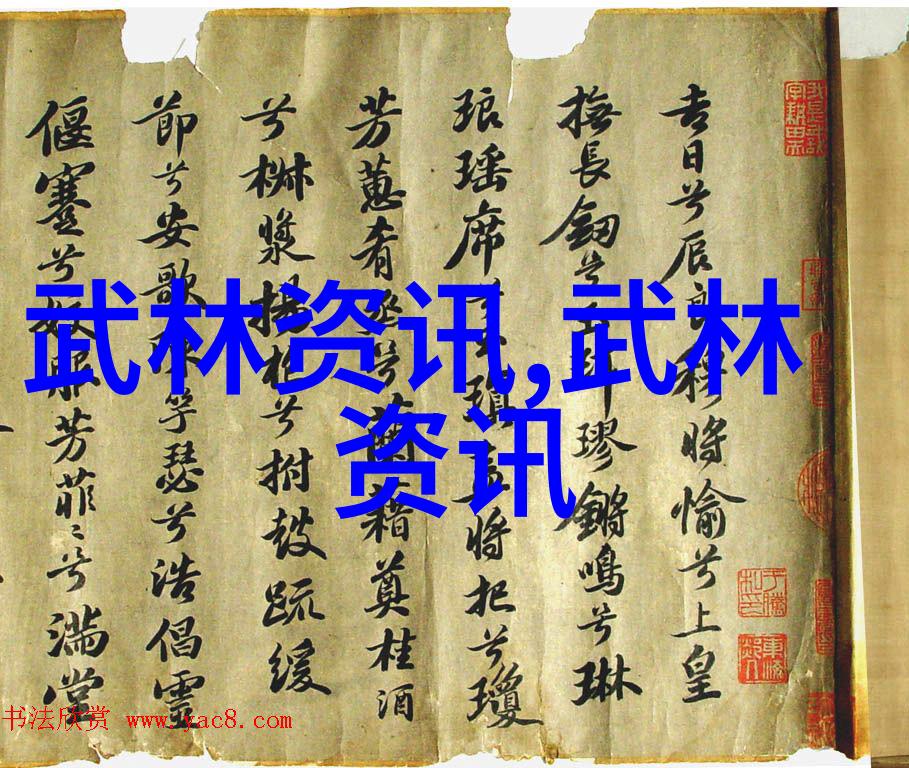 吉日兮辰良穆將愉兮上皇
撫長劔兮玉珥璆鏘鳴兮琳
琅瑶席兮玉瑱盍將把兮瓊
芳蕙肴烝兮蘭藉奠桂酒
兮椒漿揚枹兮拊鼓疏緩
節兮安歌陳竽瑟兮浩倡靈
偃蹇兮姣服芳菲〻兮滿堂
武林资讯,武林
资讯
书法欣赏 www.yac8.com